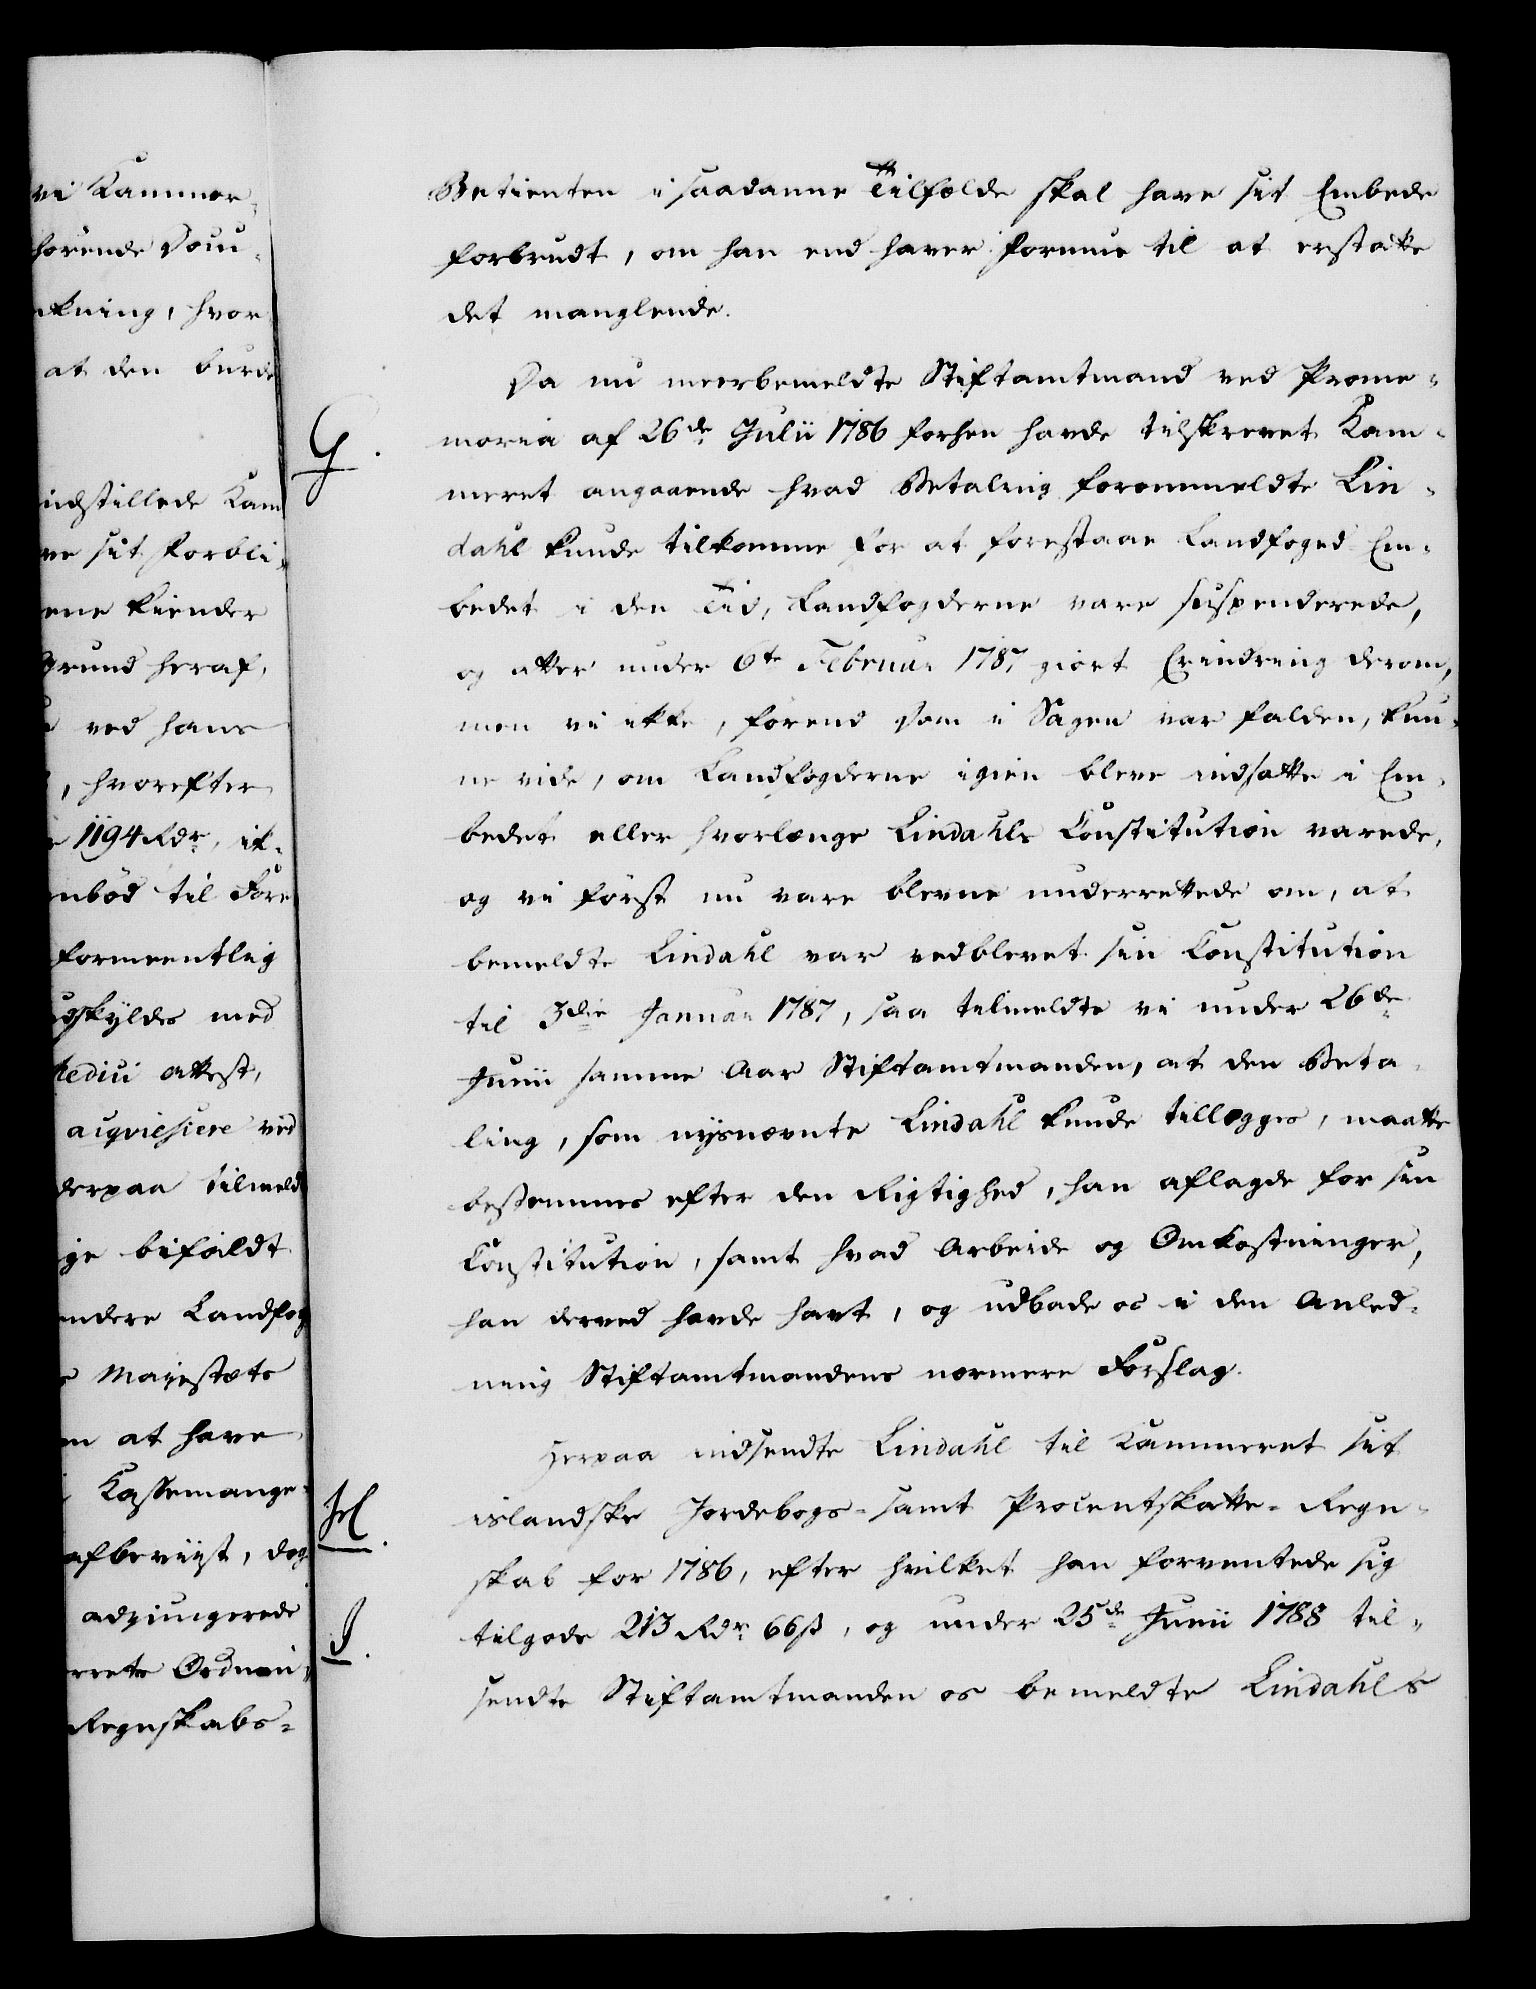 vi Kammer-
hörende Dom,
kning, hvor
at den burde
indstillede Kam
ve sit Forbli-
ene kiender
Grund heraf,
ved hans
, hvorefter
1194 Rdr, ik-
nbød til Fore
formeentlig
gskyldes med
Medici Attest,
acqviesiere ved
derpaa tilmeld
ge bifaldt
ndere Landfog
Majestæts
m at have
Kassemange-
afbeviist, dog
adjungerede
rrets Ordnin-
Regnskabs-
Betienten i saadanne Tilfælde skal have sit Embede
forbrudt, om han end haver Formue til at erstatte
det manglende.
Da nu meerbemeldte Stiftamtmand ved Prome-
G.
moria af 26de Julii 1786 forhen havde tilskrevet Kam-
meret angaaende hvad Betaling forommeldte Lin-
dahl kunde tilkomme for at forestaae Landfoged-Em-
bedet i den Tid, Landfogderne vare suspenderede,
og atter under 6te Februar 1787 giort Erindring derom,
men vi ikke, førend Dom i Sagen var falden, kun-
ne vide, om Landfogderne igien bleve indsatte i Em-
bedet eller hvorlænge Lindahls Constitution varede,
og vi først nu vare blevne underrettede om, at
bemeldte Lindahl var vedblevet sin Constitution
til 3die Januar 1787, saa tilmeldte vi under 26de
Junii samme Aar Stiftamtmanden, at den Beta-
ling, som nysnævnte Lindahl kunde tillægges, maatte
bestemmes efter den Rigtighed, han aflagde for sin
Constitution, samt hvad Arbeide og Omkostninger,
han derved havde havt, og udbade os i den Anled-
ning Stiftamtmandens nærmere Forslag.
Herpaa indsendte Lindahl til Kammeret sit
H.
islandske Jordebogs- samt Procentskatte-Regn-
skab for 1786, efter hvilket han forventede sig
I.
tilgode 213 Rdr 66 ß, og under 25de Junii 1788 til-
sendte Stiftamtmanden os bemeldte Lindahls